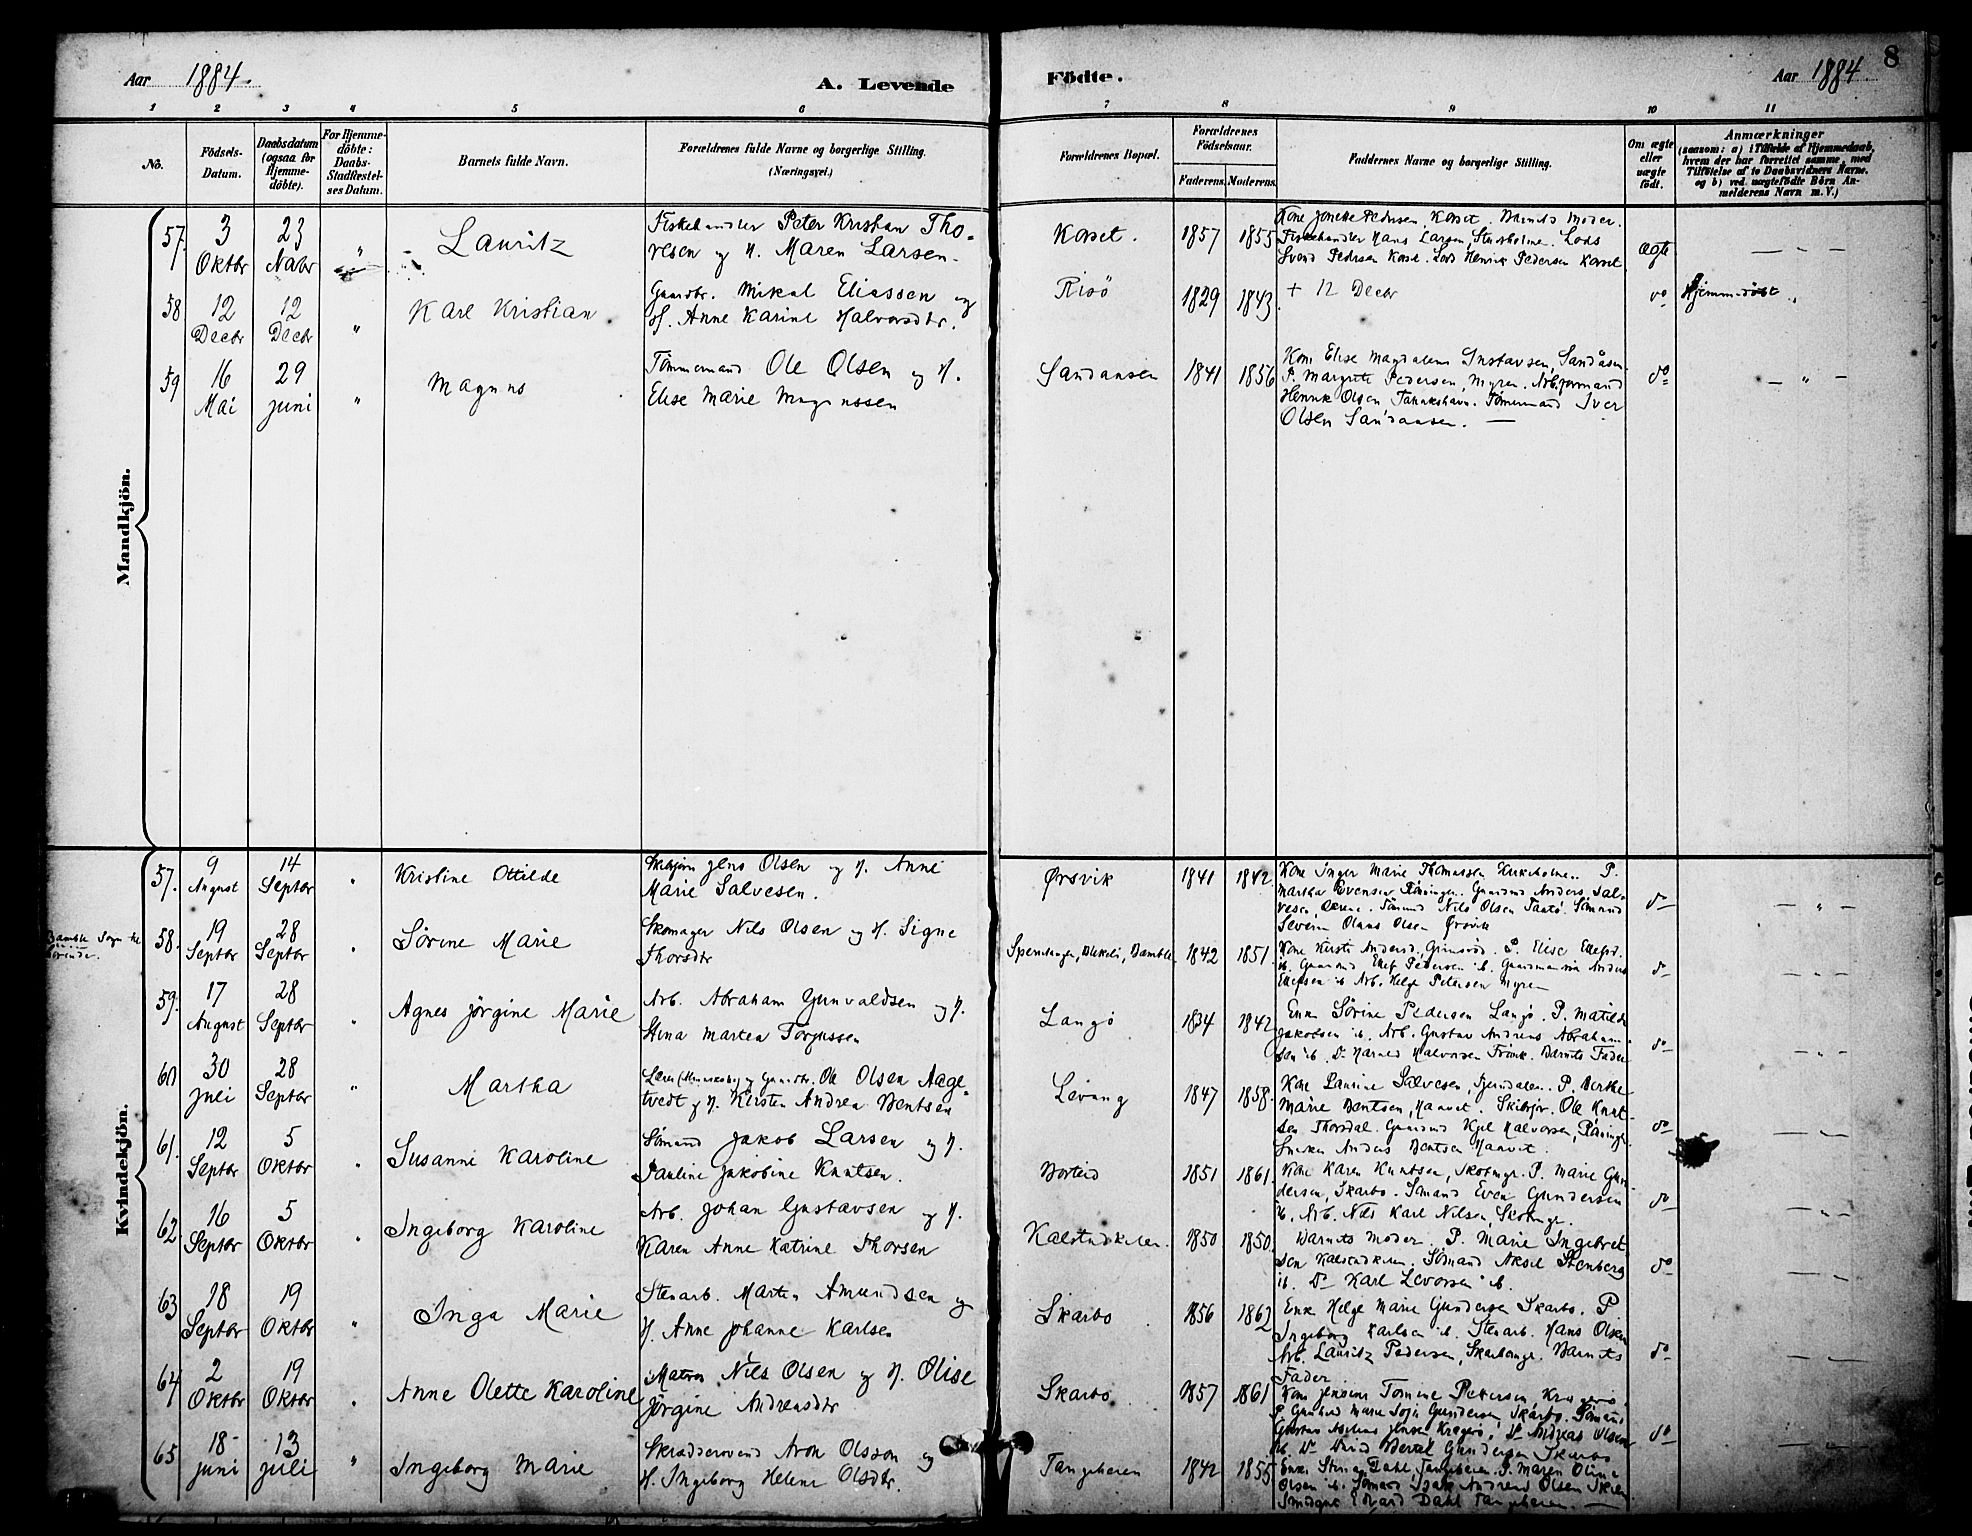 Aar 1884.
A. Levende
Födte.
Aar 1884.
8
1 2 3 4 5 6 7 8 9 10 11
No.
Födsels-
Datum.
Daabsdatum
(ogsaa for
Hjemme-
döbte).
For Hjemme-
döbte:
Daabs-
Stadfæstel-
ses Datum.
Barnets fulde Navn.
Forældrenes fulde Navne og borgerlige Stilling.
(Næringsvei.)
Forældrenes Bopæl.
Forældrenes
Födselsaar.
Faderens.
Moderens.
Faddernes Navne og borgerlige Stilling.
Om ægte
eller
uægte
födt.
Anmærkninger
(saasom: a) i Tilfælde af Hjemmedaab,
hvem der har forrettet samme, med
Tilföielse af to Daabsvidners Navne,
og b) ved uægtefödte Börn An-
melderens Navn m. V.)
Mandkjön.
57.
3
Oktbr
23
Novbr
"
Lauritz
Fiskehandler Peter Kristian Tho-
resen og H. Maren Larsen.
Korset.
1857
1855
Kone Jonette Pedersen, Korset. Barnets Moder.
Fiskehandler Hans Larsen, Lods
Svend Pedersen Korset. Lods Henrik Pedersen Korset
Ægte
— " —
58
12
Decbr
12
Decbr
"
Karl Kristian
Gaardbr. Mikal Eliassen og
H. Anne Karine Halvorsdtr.
Risö
1829
1843.
+ 12 Decbr
do
Hjemmedöbt
59
16
Mai
29
Juni
"
Magnus
Tömmermand Ole Olsen og H.
Elise Marie Magnussen
Sandaasen
1841
1856
Kone Elise Magdalene Gustavsen, Sandåsen
P. Margrete Pedersen, Myren. Arb.formand
Henrik Olsen. Tömmermand Iver
Olsen Sandaasen. —
do
— " —
Kvindekjön.
57.
9
August
14
Septbr
"
Kristine Ottilde
Skibstjöm. Jens Olsen og H. Anne
Marie Salvesen.
Ørsvik
1841
1842.
Kone Inger Marie Thomassen Kirkeholmen. P.
Martha Evensen Gaardmd Anders Sal-
vesen, Sömand Nils Olsen Taatö. Sömand
Severin Olaus Olsen Ørsvik
do
— " —
Bamble Sogn
58.
19
Septbr
28
Septbr
"
Sörine Marie
Skomager Nils Olsen og H. Signe
Thorsdtr
Bamble
1842
1851.
Kone Kirsti Andersd. P. Elise Ellefsd.
ib. Gaardmd Ellef Pedersen ib. Gaardmandssön Anders
Ellefsen ib Arb. Helge Petersen Myren
do
— " —
59.
17
August
28
Septbr
"
Agnes Jörgine Marie
Arb. Abraham Gunvaldsen og H.
Stina Martea Torgussen
Langö
1834
1842
Enke Sörine Pedersen Langö. P. Matilde
Jakobsen ib. Arb. Gustav Andreas Abraham-
sen ib. Do Harald Halvorsen Barnets Fader
do
— " —
60
30
Juli
28
Septbr
"
Martha
Lærer og Gaardbr. Ole Olsen Aage-
tvedt og H. Kirsten Andrea Bentsen
Levang
1847
1858.
Kone Laurine Salvesen, P. Berthe
Marie Bentsen, Haavet. Skibsför. Ole Knut-
sen Thorsdal. Gaardmd Kjel Halvorsen,
Snekker Anders Bentsen Haavet.
do
— " —
61.
12
Septbr
5
Oktbr
"
Susanne Karoline
Sömand Jakob Larsen og H.
Pauline Jakobine Knutsen.
1851
1861.
Kone Karen Knutsen, P. Marie Gun-
dersen, Skarbo. Sömand Even Gundersen
ib. Arb. Nils Karl Nilsen,
do
— " —
62.
16
Septbr
5
Oktbr
"
Ingeborg Karoline
Arb. Johan Gustavsen og H.
Karen Anne Katrine Thorsen
Kalstadkilen.
1850
1850.
Barnets Moder. P. Marie Ingebret-
sen Kalstadkilen. Sömand Aksel Stenberg
ib. Do Karl Levorsen ib.
do
— " —
63
18
Septbr
19
Oktbr
"
Inga Marie
Stenarb. Martin Amundsen og
H. Anne Johanne Karlsen
Skarbo
1856
1862
Enke Helge Marie Gundersen Skarbo. P
Ingeborg Karlsen ib. Stenarb. Hans Olsen
Arb. Lauritz Pedersen, Barnets
Fader.
do
— " —
64
2
Oktbr
19
Oktbr
"
Anne Olette Karoline
Matros Nils Olsen og H. Olise
Jörgine Andreasdtr
Skarbo
1857
1861
Kone Jensine Tomine Petersen Kragerö.
P. Gunhild Marie Gundersen, Skarbo. Sömand
Jensen Kragerö. Do Andreas Olsen
ib. Do Bertel Gundersen Skarbo
do
— " —
65
18
Juni
13
Juli
"
Ingeborg Marie
Skræddersvend Aron Olsson og
H. Ingeborg Helene Olsdtr.
Tangeheien
1842
1855
Enke Dahl, Tangeheien. P. Maren Oline
Olsen ib. Sömand Isak Andreas Olsen
Edvard Dahl Tangeheien. —